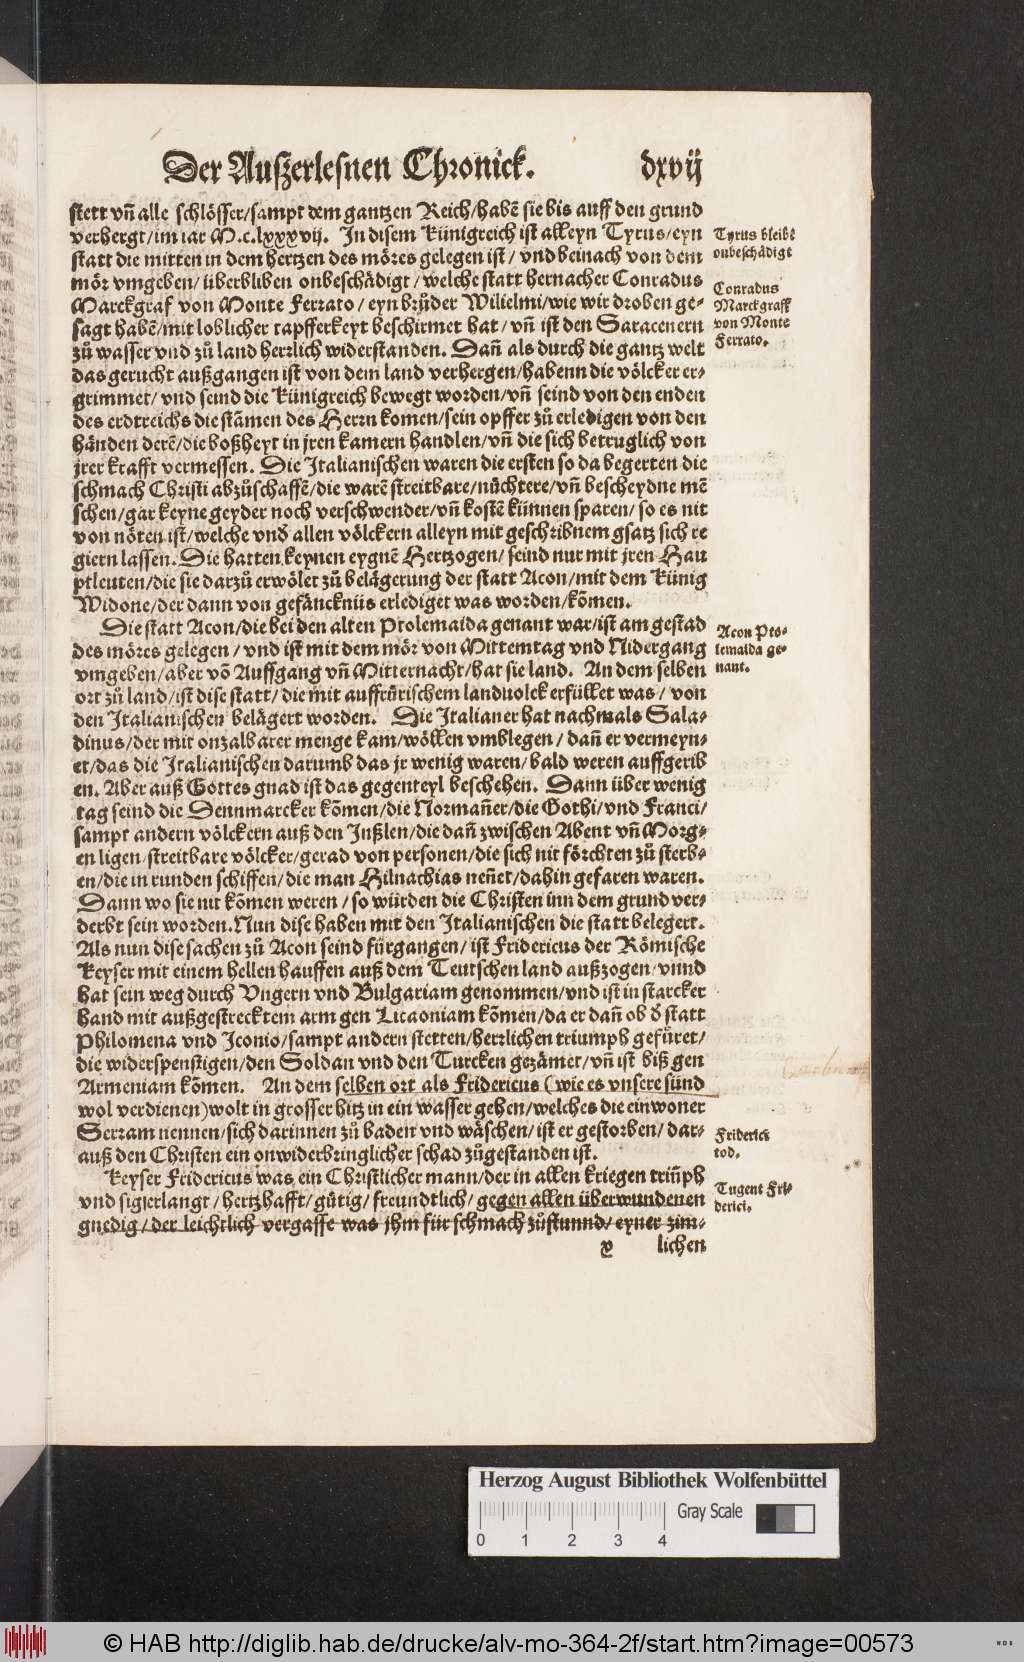 Der Auſzerleſnen Chronick. dxvij
ſtett vñ alle ſchlöſſer/ſampt dem gantzen Reich/habē ſie bis auff den grund
verhergt/im iar M.c.lxxxvij. In diſem Künigreich iſt alleyn Tyrus/eyn
ſtatt die mitten in dem hertzen des möres gelegen iſt/ vnd beinach von dem
mör vmgeben/ überbliben onbeſchädigt/ welche ſtatt hernacher Conradus
Marckgraf von Monte Ferrato/ eyn brůder Wilielmi/wie wir droben ge⸗
ſagt habē/mit loblicher tapfferkeyt beſchirmet hat/ vñ iſt den Saracenern
zů waſſer vnd zů land herzlich widerſtanden. Dañ als durch die gantz welt
das gerucht außgangen iſt von dem land verhergen/habenn die völcker er⸗
grimmet/ vnd ſeind die Künigreich bewegt worden/vñ ſeind von den enden
des erdtreichs die ſtāmen des Herrn komen/ſein opffer zů erledigen von den
händen derē/die boßheyt in jren kamern handlen/vñ die ſich betruglich von
jrer krafft vermeſſen. Die Italianiſchen waren die erſten ſo da begerten die
ſchmach Chriſti abzůſchaffē/die warē ſtreitbare/nůchtere/vñ beſcheydne mē
ſchen/gar keyne geyder noch verſchwender/vñ koſtē künnen ſparen/ ſo es nit
von nöten iſt/welche vnď allen völckern alleyn mit geſchribnem gſatz ſich re
giern laſſen. Die hatten keynen eygnē Hertzogen/ ſeind nur mit jren Hau
ptleuten/die ſie darzů erwölet zů belägerung der ſtatt Acon/mit dem Künig
Widone/der dann von gefäncknüs erlediget was worden/kōmen.
Die ſtatt Acon/die bei den alten Ptolemaida genant war/iſt am geſtad
des möres gelegen/ vnd iſt mit dem mör von Mittemtag vnd Nidergang
vmgeben/aber vō Auffgang vñ Mitternacht/hat ſie land. An dem ſelben
ort zů land/iſt diſe ſtatt/ die mit auffrůriſchem landuolck erfüllet was/ von
den Italianiſchen belägert worden. Die Italianer hat nachmals Sala⸗
dinus/der mit onzalbarer menge kam/wöllen vmblegen/ dañ er vermeyn⸗
et/das die Italianiſchen darumb das jr wenig waren/ bald weren auffgerib
en. Aber auß Gottes gnad iſt das gegenteyl beſchehen. Dann über wenig
tag ſeind die Dennmarcker kōmen/die Normañer/die Gothi/vnd Franci/
ſampt andern völckern auß den Inßlen/die dañ zwiſchen Abent vñ Morg⸗
en ligen/ſtreitbare völcker/gerad von perſonen/die ſich nit förchten zů ſterb⸗
en/die in runden ſchiffen/die man Hilnachias neñet/dahin gefaren waren.
Dann wo ſie nit kōmen weren/ ſo würden die Chriſten inn dem grund ver⸗
derbt ſein worden. Nun diſe haben mit den Italianiſchen die ſtatt belegert.
Als nun diſe ſachen zů Acon ſeind fürgangen/ iſt Fridericus der Römiſche
Keyſer mit einem hellen hauffen auß dem Teutſchen land außzogen/vnnd
hat ſein weg durch Vngern vnd Bulgariam genommen/vnd iſt in ſtarcker
hand mit außgeſtrecktem arm gen Licaoniam kōmen/da er dañ ob ď ſtatt
Philomena vnd Iconio/ſampt andern ſtetten/herzlichen triumph gefüret/
die widerſpenſtigen/den Soldan vnd den Turcken gezämet/vñ iſt biß gen
Armeniam kōmen. An dem ſelben ort als Fridericus (wie es vnſere ſünd
wol verdienen) wolt in groſſer hitz in ein waſſer gehen/welches die einwoner
Serram nennen/ſich darinnen zů baden vnd wäſchen/ iſt er geſtorben/ dar⸗
auß den Chriſten ein onwiderbringlicher ſchad zůgeſtanden iſt.
Keyſer Fridericus was ein Chriſtlicher mann/der in allen kriegen triūph
vnd ſig erlangt/ hertzhafft/ gütig/ freundtlich/ gegen allen überwundenen
gnedig/ der leichtlich vergaſſe was jhm für ſchmach zůſtunnd/ eyner zim⸗
y lichen
Tyrus bleibt
onbeſchädigt
Conradus
Marckgraff
von Monte
Ferrato.
Acon Pto⸗
lemaida ge⸗
nant.
Friderici
tod.
Tugent Fri⸗
derici.
Herzog August Bibliothek Wolfenbüttel
Gray Scale
0 1 2 3 4
© HAB http://diglib.hab.de/drucke/alv-mo-364-2f/start.htm?image=00573